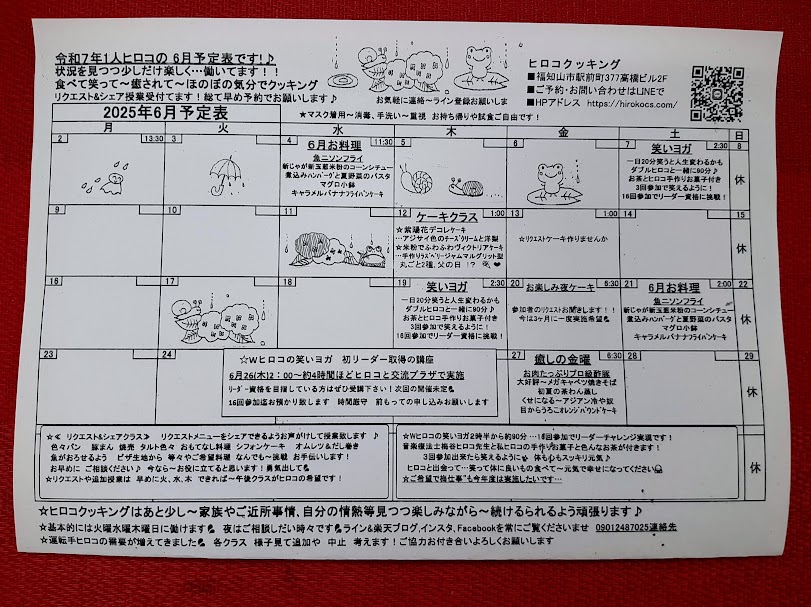 令和7年1人ヒロコの 6月予定表です!♪
状況を見つつ少しだけ楽しく…働いてます!!
食べて笑って~癒されて~ほのぼの気分でクッキング
リクエスト&シェア授業受付てます!総て早め予約でお願いします♪
お気軽に連絡~ライン登録お願いしま
ヒロコクッキング
■福知山市駅前町377高橋ビル2F
■ご予約・お問い合わせはLINEで
■HPアドレス https://hirokocs.com/
2025年6月予定表
★マスク着用~消毒、手洗い~重視 お持ち帰りや試食ご自由です!
月 火 水 木 金 土 日
2 13:30 3 4 6月お料理 11:30 5 6 7 笑いヨガ 2:30 8
魚ニソンフライ
新じゃが新玉葱米粉のコーンシチュー
煮込みハンバーグと夏野菜のパスタ
マグロ小鉢
キャラメルバナナフライパンケーキ
一日20分笑うと人生変わるかも
ダブルヒロコと一緒に90分♪
お茶とヒロコ手作りお菓子付き
3回参加で笑えるように!
16回参加でリーダー資格に挑戦!
休
9 10 11 12 ケーキクラス 1:00 13 1:00 14 15
★紫陽花デコレケーキ
…アジサイ色のチーズクリームと洋梨
★米粉でふわふわヴィクトリアケーキ
…手作りラズベリージャムマルグリット型
丸ごと2種、父の日 !?
☆リクエストケーキ作りませんか
休
16 17 18 19 笑いヨガ 2:30 20 お楽しみ夜ケーキ 6:30 21 6月お料理 22
一日20分笑うと人生変わるかも
ダブルヒロコと一緒に90分♪
お茶とヒロコ手作りお菓子付き
3回参加で笑えるように!
16回参加でリーダー資格に挑戦!
参加者のリクエストお聞きします!!
今は3ヶ月に一度実施希望
魚ニソンフライ
新じゃが新玉葱米粉のコーンシチュー
煮込みハンバーグと夏野菜のパスタ
マグロ小鉢
キャラメルバナナフライパンケーキ
休
23 24 27 癒しの金曜 6:30 28 29
☆Wヒロコの笑いヨガ 初リーダー取得の講座
6月26(木)2:00~約4時間ほどヒロコと交流プラザで実施
リーダー資格を目指している方はぜひ受講下さい!次回の開催未定
16回参加迄お預かり致します 時間厳守 前もっての申し込みお願いします
お肉たっぷりプロ級酢豚
大好評~メガキャベツ焼きそば
初夏の茶わん蒸し
くせになる~アジアン冷や奴
目からうろこオレンジパウンドケーキ
休
☆≪ リクエスト&シェアクラス≫ リクエストメニューをシェアできるようお声がけして授業致します ♪
色々パン 豚まん 焼売 タルト色々 おもてなし料理 シフォンケーキ オムレツ&だし巻き
魚がおろせるよう ピザ生地から 等々やご希望料理 なんでも~挑戦 お手伝いします!
お早めに ご相談ください♪ 今なら~お役に立てると思います!勇気出して
☆リクエストや追加授業は 早めに火、水、木 できれば~午後クラスがヒロコの希望です!
☆Wヒロコの笑いヨガ2時半から約90分 …16回参加でリーダーチャレンジ実現です!
音楽療法士梅谷ヒロコ先生と私ヒロコの手作りお菓子と色んなお茶が付きます!
3回参加出来たら笑えるように 体も心もスッキリ元気♪
ヒロコと出会って…笑って体に良いもの食べて~元気で幸せになってください
☆ご希望で梅仕事”も今年度は実施したいです…
休
☆ヒロコクッキングはあと少し~家族やご近所事情、自分の情熱等見つつ楽しみながら~続けられるよう頑張ります♪
☆基本的には火曜水曜木曜日に働けます 夜はご相談だい時々です ライン&楽天ブログ,インスタ、Facebookを常にご覧くださいませ 09012487025連絡先
☆運転手ヒロコの需要が増えてきました 各クラス 様子見て追加や 中止 考えます!ご協力お付き合いよろしくお願いします